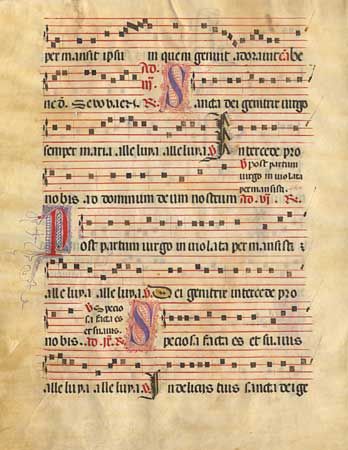 permansit ipsu in quem genuit adoravit. Be
ad
iij.
ne d. Sevovaet. R. Sancta dei genitrix virgo
semper maria alleluya alleluya. V. Intercede pro
V. post partum
virgo inviolata
permansisti.
nobis ad dominum deum nostrum ad. vj. R.
Post partum virgo inviolata permansisti &
alleluya alleluya. V. Dei genitrix intercede pro
V. Specio
sa facta es
et suavis.
nobis. R. Speciosa facta es et suavis
alleluya alleluya. V. In deliciis tuis sancta dei ge